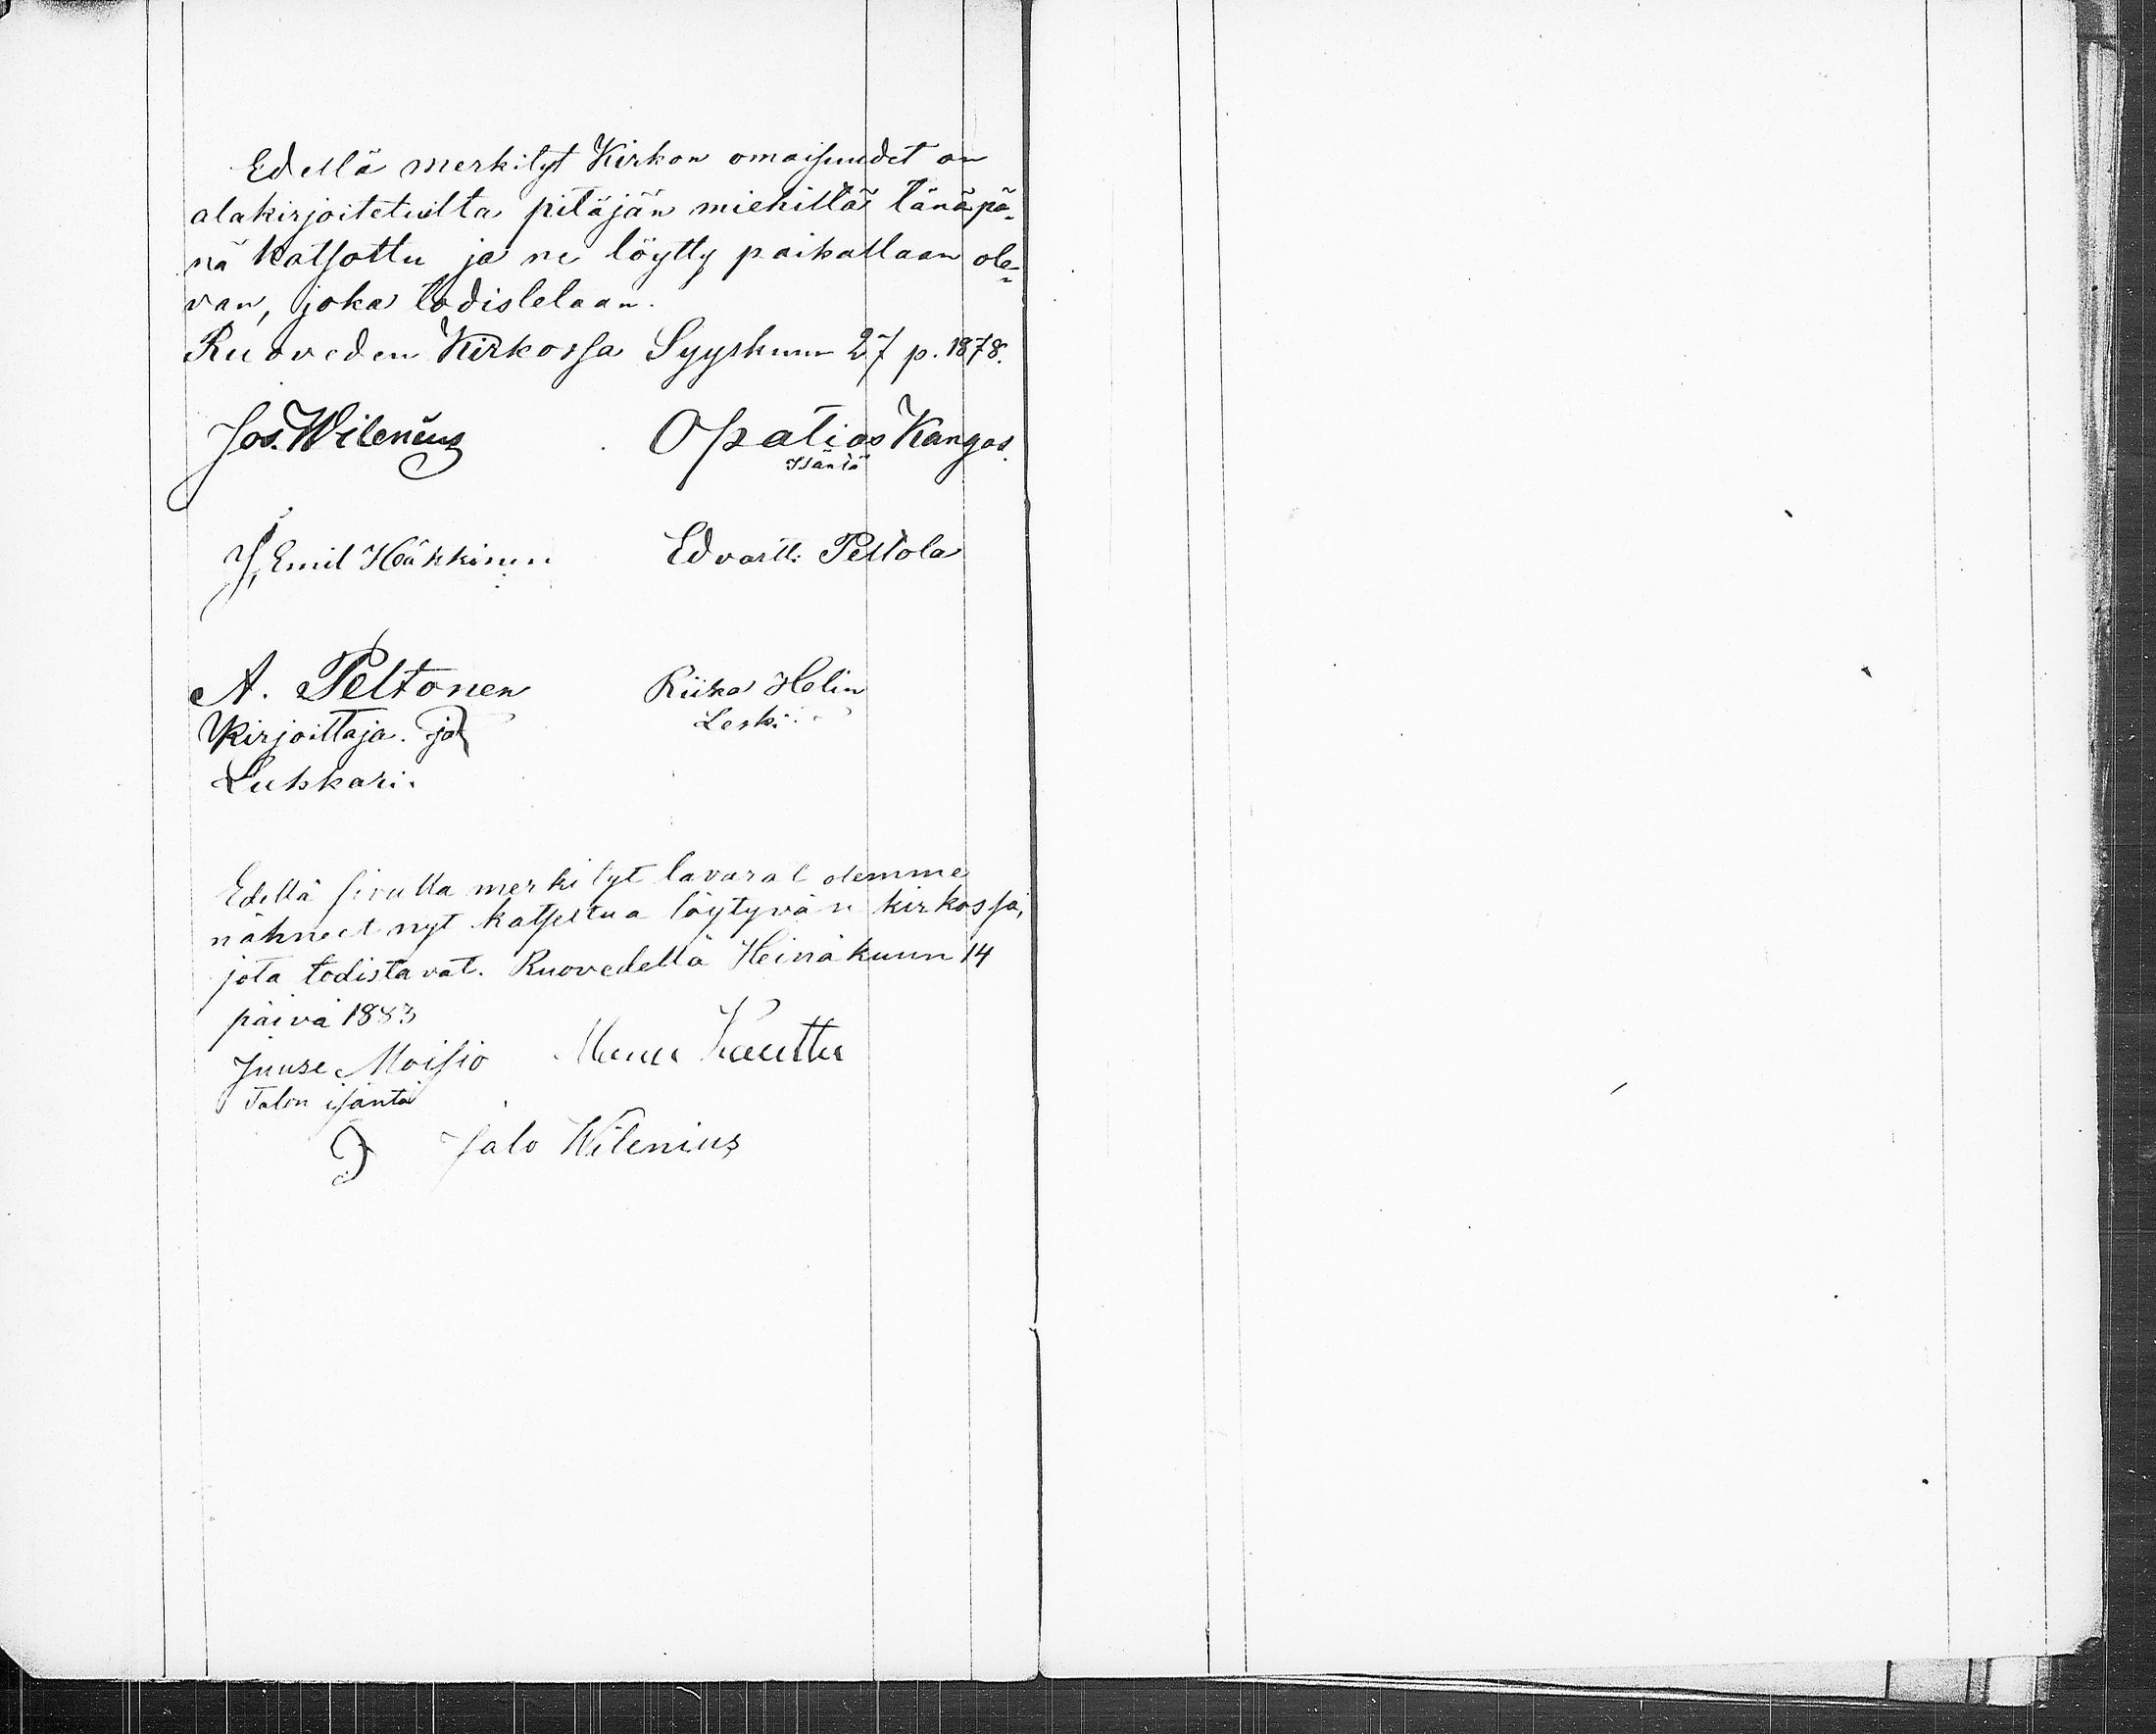 Edellä merkityt Kirkon omaisuudet on
alakirjoitetuilta pitäjän miehiltä tänäpä-
nä katsottu ja ne löytty paikallaan ole-
van, joka todistetaan.
Ruoveden Kirkossa Syyskuun 27 p. 1878.
Jos. Wilenius Opatias Kangas.
Isäntä
J. Emil Häkkinen Edvartti Peltola
A. Peltonen Riika Helin
Kirjoittaja. ja Leski
Lukkari.
Edellä sivulla merkityt tavarat olemme
nähneet nyt katsottua löytyvän kirkossa,
jota todistavat. Ruovedellä Heinäkuun 14
päivä 1883
Juuse Moisio Kautto
Talon isäntä
Jalo Wilenius